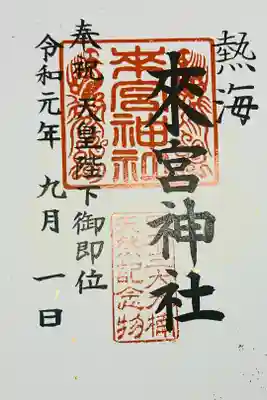 熱海
來宮神社
奉祝 天皇陛下御即位
令和元年 九月 一日
来宮神社
天然記念物